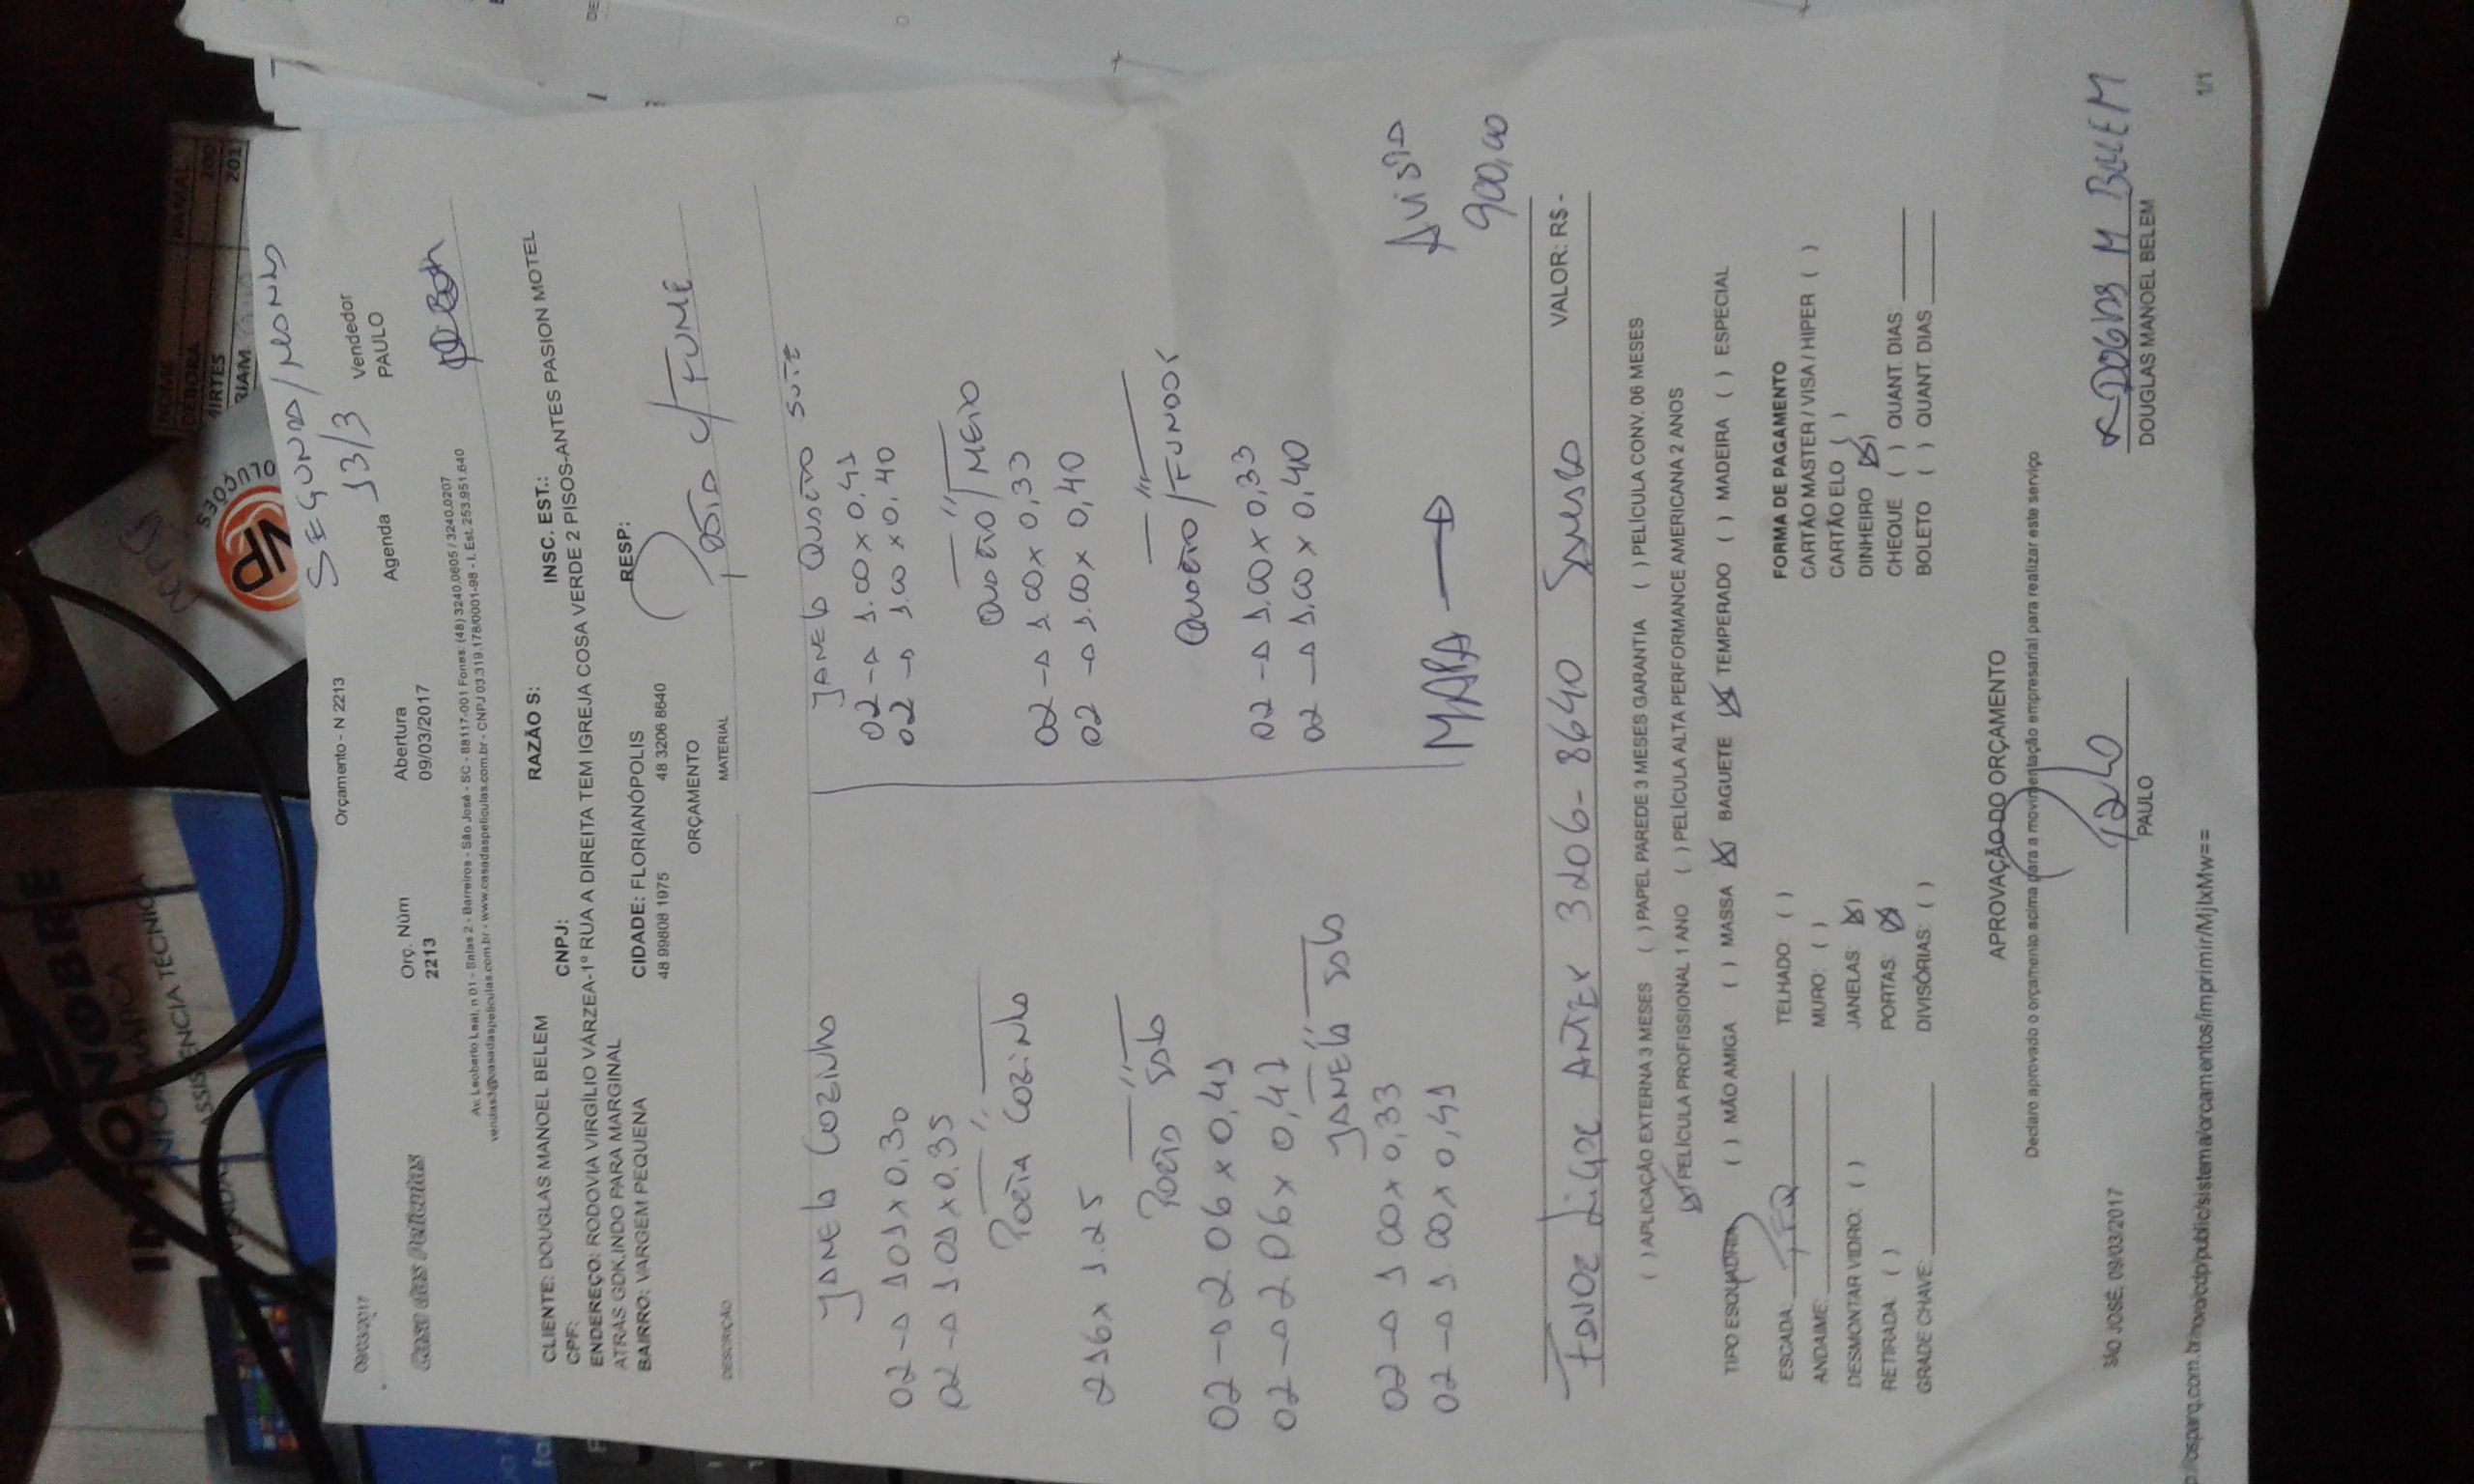 09/03/2017
Orçamento - N 2213
SEGUNDA/
Casa das Películas
Orç. Núm
2213
Abertura
09/03/2017
Agenda 13/3
Vendedor
PAULO
Av. Leoberto Leal, n 01 - Salas 2 - Barreiros - São José - SC - 88117-001 Fones: (48) 3240.0605 / 3240.0207
vendas3@casadaspeliculas.com.br - www.casadaspeliculas.com.br - CNPJ 03.319.178/0001-98 - I. Est. 253.951.640
CLIENTE: DOUGLAS MANOEL BELEM
RAZÃO S:
CPF:
CNPJ:
INSC. EST.:
ENDEREÇO: RODOVIA VIRGÍLIO VÁRZEA-1º RUA A DIREITA TEM IGREJA COSA VERDE 2 PISOS-ANTES PASION MOTEL
ATRÁS GDK,INDO PARA MARGINAL
BAIRRO: VARGEM PEQUENA
CIDADE: FLORIANÓPOLIS
RESP:
48 99808 1975
48 3206 8640
ORÇAMENTO
DESCRIÇÃO
MATERIAL
C/ FUMÊ
JANELA COZINHA
02 → 1 01 x 0,30
02 → 1.01 x 0.35
PORTA COZINHA
216 x 1.25
PORTA SALA
02 → 2 06 x 0,41
02 → 2 06 x 0,47
JANELA SALA
02 → 1 00 x 0,33
02 → 1.00 x 0,41
JANELA QUARTO SUÍTE
02 → 1.00 x 0,41
02 → 1,00 x 0,40
QUARTO/MEIO
02 → 1.00 x 0,33
02 → 1.00 x 0,40
QUARTO/FUNDOS
02 → 1,00 x 0,33
02 → 1,00 x 0,40
MARA →
AVISTA
900,00
FAVOR LIGAR ANTES 3206-8640
VALOR: R$ -
( ) APLICAÇÃO EXTERNA 3 MESES ( ) PAPEL PAREDE 3 MESES GARANTIA ( ) PELÍCULA CONV. 06 MESES
(X) PELÍCULA PROFISSIONAL 1 ANO ( ) PELÍCULA ALTA PERFORMANCE AMERICANA 2 ANOS
TIPO ESQUADRIA ( ) MÃO AMIGA ( ) MASSA (X) BAGUETE (X) TEMPERADO ( ) MADEIRA ( ) ESPECIAL
ESCADA:
ANDAIME:
DESMONTAR VIDRO: ( )
RETIRADA: ( )
GRADE CHAVE:
TELHADO: ( )
MURO: ( )
JANELAS: (X)
PORTAS: (X)
DIVISÓRIAS: ( )
FORMA DE PAGAMENTO
CARTÃO MASTER / VISA / HIPER ( )
CARTÃO ELO ( )
DINHEIRO (X)
CHEQUE ( ) QUANT. DIAS
BOLETO ( ) QUANT. DIAS
APROVAÇÃO DO ORÇAMENTO
Declaro aprovado o orçamento acima para a movimentação empresarial para realizar este serviço
SÃO JOSÉ, 09/03/2017
PAULO
DOUGLAS M BELEM
DOUGLAS MANOEL BELEM
1/1
NOME
RAMAL
DEBORA
200
MIRTES
201
RIAM
VP
OLUÇÕES
NOBRE
ASSISTÊNCIA TÉCNICA